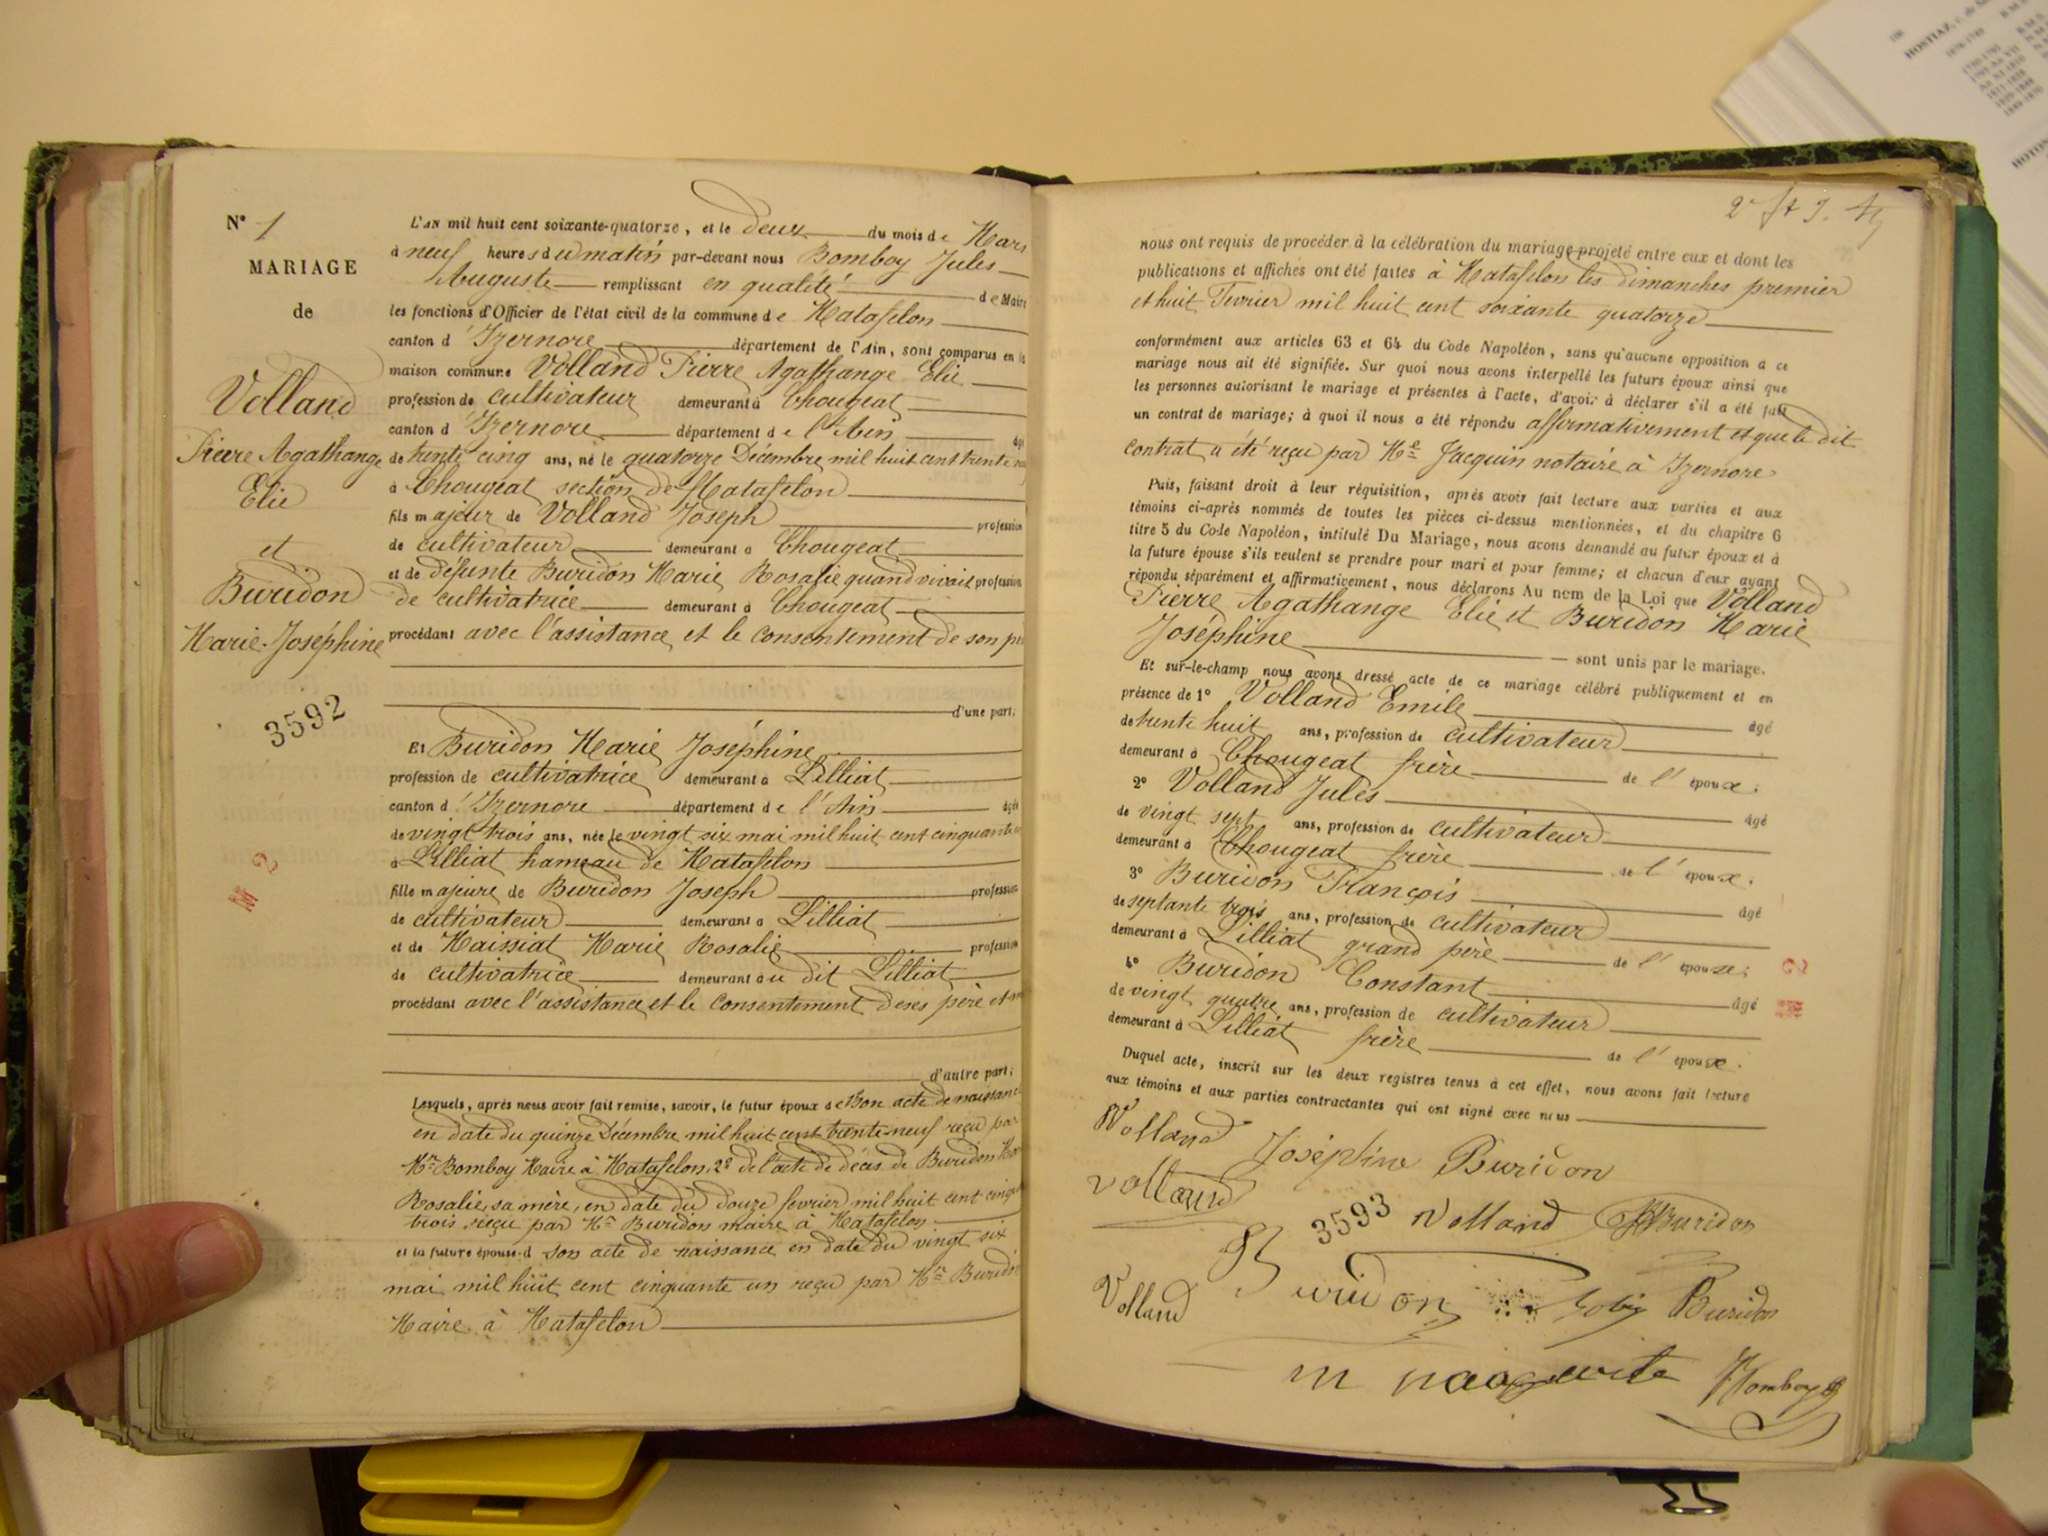 N° 1
MARIAGE
de
Volland
Pierre Agathange
Elie
et
Buridon
Marie-Joséphine
3592
M 2
L'AN mil huit cent soixante-quatorze, et le deux du mois de Mars
à neuf heures du matin par-devant nous Bomboy Jules
Auguste remplissant en qualité de Maire
les fonctions d'Officier de l'état civil de la commune de Matafelon
canton d'Izernore département de l'Ain, sont comparus en la
maison commune Volland Pierre Agathange Elie
profession de cultivateur demeurant à Chougeat
canton d'Izernore département de l'Ain âgé
de trente cinq ans, né le quatorze Décembre mil huit cent trente
à Chougeat section de Matafelon
fils majeur de Volland Joseph profession
de cultivateur demeurant à Chougeat
et de défunte Buridon Marie Rosalie quand vivait profession
de cultivatrice demeurant à Chougeat
procédant avec l'assistance et le consentement de son
d'une part;
Et Buridon Marie Joséphine
profession de cultivatrice demeurant à Lilliat
canton d'Izernore département de l'Ain âgée
de vingt trois ans, née le vingt six mai mil huit cent cinquante
à Lilliat hameau de Matafelon
fille majeure de Buridon Joseph profession
de cultivateur demeurant à Lilliat
et de Maissiat Marie Rosalie profession
de cultivatrice demeurant au dit Lilliat
procédant avec l'assistance et le consentement de ses père et
d'autre part;
Lesquels, après nous avoir fait remise, savoir, le futur époux de son acte de naissance
en date du quinze Décembre mil huit cent trente-neuf reçu par
Mr Bomboy Maire à Matafelon, 2° de l'acte de décès de Buridon
Rosalie, sa mère, en date du douze fevrier mil huit cent
trois reçu par Mr Buridon maire à Matafelon
et la future épouse d son acte de naissance en date du vingt six
mai mil huit cent cinquante un reçu par Mr Buridon
Maire à Matafelon
nous ont requis de procéder à la célébration du mariage projeté entre eux et dont les
publications et affiches ont été faites à Matafelon les dimanches premier
et huit Fevrier mil huit cent soixante quatorze
conformément aux articles 63 et 64 du Code Napoléon, sans qu'aucune opposition à ce
mariage nous ait été signifiée. Sur quoi nous avons interpellé les futurs époux ainsi que
les personnes autorisant le mariage et présentes à l'acte, d'avoir à déclarer s'il a été fait
un contrat de mariage; à quoi il nous a été répondu affirmativement et que le dit
contrat a été reçu par Me Jacquin notaire à Izernore
Puis, faisant droit à leur réquisition, après avoir fait lecture aux parties et aux
témoins ci-après nommés de toutes les pièces ci-dessus mentionnées, et du chapitre 6
titre 5 du Code Napoléon, intitulé Du Mariage, nous avons demandé au futur époux et à
la future épouse s'ils veulent se prendre pour mari et pour femme; et chacun d'eux ayant
répondu séparément et affirmativement, nous déclarons Au nom de la Loi que Volland
Pierre Agathange Elie et Buridon Marie
Joséphine sont unis par le mariage.
Et sur-le-champ nous avons dressé acte de ce mariage célébré publiquement et en
présence de 1° Volland Emile âgé
de trente huit ans, profession de cultivateur
demeurant à Chougeat frère de l'époux;
2° Volland Jules âgé
de vingt sept ans, profession de cultivateur
demeurant à Chougeat frère de l'époux;
3° Buridon François âgé
de septante trois ans, profession de cultivateur
demeurant à Lilliat grand père de l'épouse;
4° Buridon Constant âgé
de vingt quatre ans, profession de cultivateur
demeurant à Lilliat frère de l'épouse.
Duquel acte, inscrit sur les deux registres tenus à cet effet, nous avons fait lecture
aux témoins et aux parties contractantes qui ont signé avec nous
Volland Joséphine Buridon
Volland 3593 Volland Buridon
Volland Buridon Buridon
Bomboy
HOSTIAZ